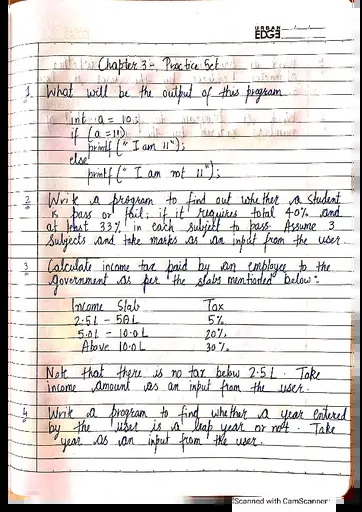 URBAN
EDGE
Chapter 3 - Practice Set
1 What will be the output of this program
int a = 10;
if (a = 11)
printf ("I am 11");
else
printf (" I am not 11");
2 Write a program to find out whether a student
is pass or fail; if it requires total 40% and
at least 33% in each subject to pass. Assume 3
subjects and take marks as an input from the user.
3 Calculate income tax paid by an employee to the
government as per the slabs mentioned below:-
Income Slab Tax
2.5L - 5.0L 5%
5.0L - 10.0L 20%
Above 10.0L 30%
Note that there is no tax below 2.5L. Take
income amount as an input from the user.
4 Write a program to find whether a year entered
by the user is a leap year or not. Take
year as an input from the user.
Scanned with CamScanner